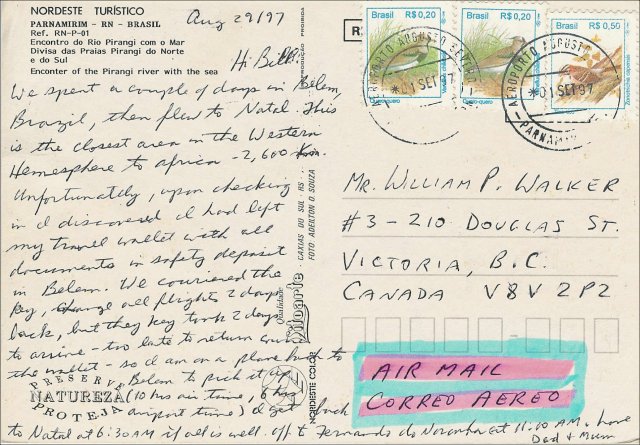 NORDESTE TURÍSTICO
PARNAMIRIM - RN - BRASIL
Ref. RN-P-01
Encontro do Rio Pirangi com o Mar
Divisa das Praias Pirangi do Norte
e do Sul
Enconter of the Pirangi river with the sea
Aug 29/97
Hi Bill:
We spent a couple of days in Belem,
Brazil, then flew to Natal. This
is the closest area in the Western
Hemesphere to Africa - 2,600 km.
Unfortunately, upon checking
in I discovered I had left
my travel wallet with all
documents in safety deposit
in Belem. We couriered the
key, change all flights 2 days
back, but they key took 2 days
to arrive - too late to return
the wallet - so I am on a plane back to
Belem to pick it up
(10 hrs air time, 6 hrs
airport time) I get back
to Natal at 6:30 AM if all is well. off to Fernando do Noronha at 11:00 AM. Love
Dad & Mum
PRESERVE
NATUREZA
PROTEJA
REPRODUÇÃO PROIBIDA
CAXIAS DO SUL - RS
FOTO ADEILTON D. SOUZA
Qualidade
NORDESTE COLOR
Brasil R$ 0,20
Quero-quero
Brasil R$ 0,20
Quero-quero
Brasil R$ 0,50
AEROPORTO AUGUSTO SEVERO
*01 SET 97
AEROPORTO AUGUSTO
*01 SET 97
PARNAMIRIM
MR. WILLIAM P. WALKER
#3 - 210 DOUGLAS ST.
VICTORIA, B.C.
CANADA V8V 2P2
AIR MAIL
CORREO AEREO